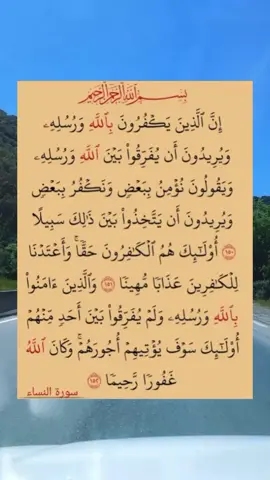 بِسْمِ ٱللَّهِ ٱلرَّحْمَٰنِ ٱلرَّحِيمِ
إِنَّ ٱلَّذِينَ يَكْفُرُونَ بِٱللَّهِ وَرُسُلِهِۦ
وَيُرِيدُونَ أَن يُفَرِّقُوا۟ بَيْنَ ٱللَّهِ وَرُسُلِهِۦ
وَيَقُولُونَ نُؤْمِنُ بِبَعْضٍ وَنَكْفُرُ بِبَعْضٍ
وَيُرِيدُونَ أَن يَتَّخِذُوا۟ بَيْنَ ذَٰلِكَ سَبِيلًا
١٥٠ أُو۟لَٰٓئِكَ هُمُ ٱلْكَٰفِرُونَ حَقًّا ۚ وَأَعْتَدْنَا
لِلْكَٰفِرِينَ عَذَابًا مُّهِينًا ١٥١ وَٱلَّذِينَ ءَامَنُوا۟
بِٱللَّهِ وَرُسُلِهِۦ وَلَمْ يُفَرِّقُوا۟ بَيْنَ أَحَدٍ مِّنْهُمْ
أُو۟لَٰٓئِكَ سَوْفَ يُؤْتِيهِمْ أُجُورَهُمْ ۗ وَكَانَ ٱللَّهُ
غَفُورًا رَّحِيمًا ١٥٢
سورة النساء